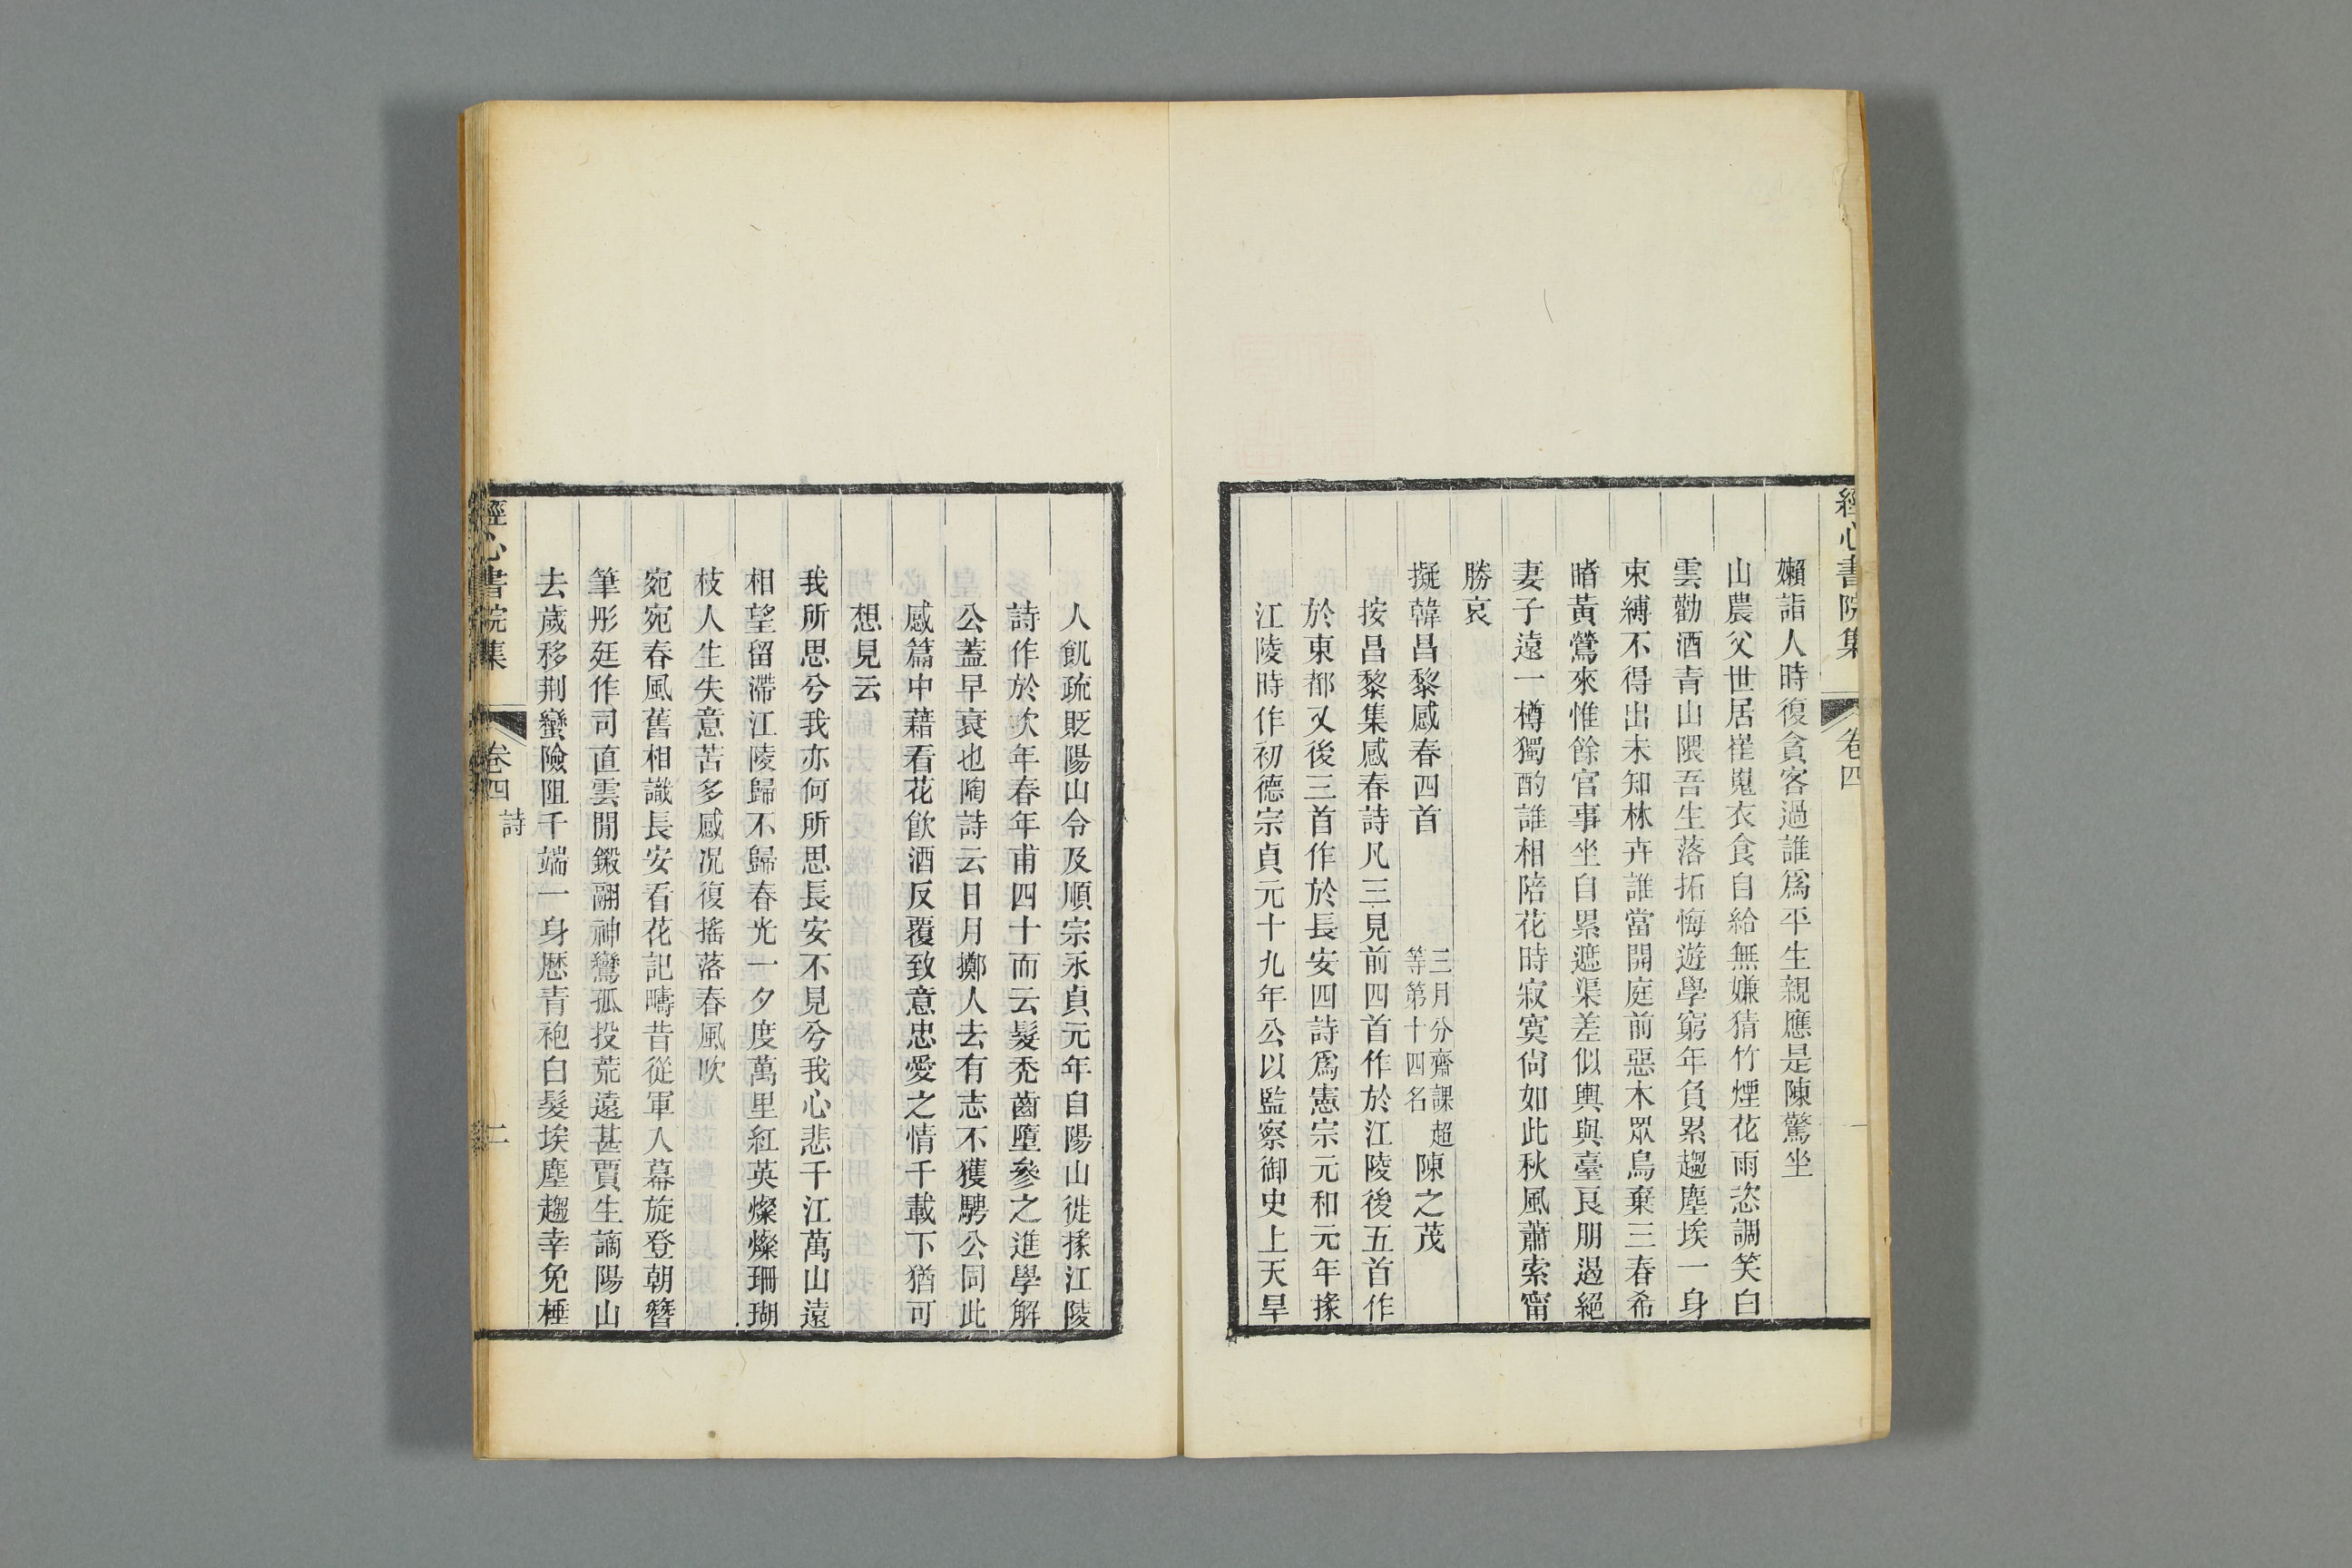 經心書院集 卷四 一
嬾詣人時復貪客過誰爲平生親應是陳驚坐
山農父世居崔嵬衣食自給無嫌猜竹煙花雨恣調笑白
雲勸酒青山隈吾生落拓悔遊學窮年負累趨塵埃一身
束縛不得出未知林卉誰當開庭前惡木眾鳥棄三春希
睹黃鶯來惟餘官事坐自累遮渠差似輿與臺良朋遏絕
妻子遠一樽獨酌誰相陪花時寂寞尙如此秋風蕭索甯
勝哀
擬韓昌黎感春四首 三月分齋課超等第十四名 陳之茂
按昌黎集感春詩凡三見前四首作於江陵後五首作
於東都又後三首作於長安四詩爲憲宗元和元年掾
江陵時作初德宗貞元十九年公以監察御史上天旱
人飢疏貶陽山令及順宗永貞元年自陽山徙掾江陵
詩作於次年春年甫四十而云髮禿齒墮參之進學解
公蓋早衰也陶詩云日月擲人去有志不獲騁公同此
感篇中藉看花飮酒反覆致意忠愛之情千載下猶可
想見云
我所思兮我亦何所思長安不見兮我心悲千江萬山遠
相望留滯江陵歸不歸春光一夕度萬里紅英燦燦珊瑚
枝人生失意苦多感況復搖落春風吹
宛宛春風舊相識長安看花記疇昔從軍人幕旋登朝簪
筆彤廷作司直雲開鎩翮神鸞孤投荒遠甚賈生謫陽山
去歲移荆蠻險阻千端一身歷青袍白髮埃塵趨幸免棰
經心書院集 卷四 詩 二